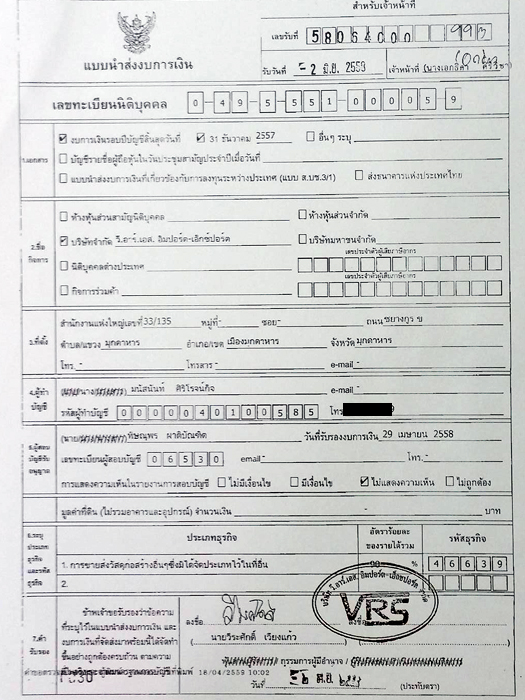 สำหรับเจ้าหน้าที่
เลขรับที่ 58064000 993
แบบนำส่งงบการเงิน
รับวันที่ -2 มิ.ย. 2559 เจ้าหน้าที่
เลขทะเบียนนิติบุคคล 0-49-5-551-00005-9
1.เอกสาร
งบการเงินรอบปีบัญชีสิ้นสุดวันที่ 31 ธันวาคม 2557 อื่นๆ ระบุ
บัญชีรายชื่อผู้ถือหุ้นในวันประชุมสามัญประจำปีเมื่อวันที่
แบบนำส่งงบการเงินที่เกี่ยวข้องกับการลงทุนระหว่างประเทศ (แบบ ส.บช.3/1) ส่งธนาคารแห่งประเทศไทย
2.ชื่อกิจการ
ห้างหุ้นส่วนสามัญนิติบุคคล ห้างหุ้นส่วนจำกัด
บริษัทจำกัด วี.อาร์.เอส. อิมปอร์ต-เอ็กซ์ปอร์ต บริษัทมหาชนจำกัด
เลขประจำตัวผู้เสียภาษีอากร
นิติบุคคลต่างประเทศ
เลขประจำตัวผู้เสียภาษีอากร
กิจการร่วมค้า
3.ที่ตั้ง
สำนักงานแห่งใหญ่เลขที่ 33/135 หมู่ที่ - ซอย - ถนน ชยางกูร ข
ตำบล/แขวง มุกดาหาร อำเภอ/เขต เมืองมุกดาหาร จังหวัด มุกดาหาร
โทร. - โทรสาร - e-mail -
4.ผู้ทำบัญชี
มนัสนันท์ ศิริโรจน์กิจ e-mail -
รหัสผู้ทำบัญชี 0000040100585 โทร
(นาย พิษณุพร ผาติบัณฑิต วันที่รับรองงบการเงิน 29 เมษายน 2558
เลขทะเบียนผู้สอบบัญชี 06530 email - โทร. -
การแสดงความเห็นในรายงานการสอบบัญชี ไม่มีเงื่อนไข มีเงื่อนไข ไม่แสดงความเห็น ไม่ถูกต้อง
มูลค่าที่ดิน (ไม่รวมอาคารและอุปกรณ์) จำนวนเงิน - บาท
6.ระบุประเภทธุรกิจและรหัสธุรกิจ
ประเภทธุรกิจ อัตราร้อยละของรายได้รวม รหัสธุรกิจ
1. การขายส่งวัสดุก่อสร้างอื่นๆซึ่งมิได้จัดประเภทไว้ในที่อื่น % 46639
2.
7.คำรับรอง
ข้าพเจ้าขอรับรองว่าข้อความ
ที่ระบุไว้ในแบบนำส่งงบการเงิน และ
งบการเงินที่จัดส่งมาพร้อมนี้ได้จัดทำ
ขึ้นอย่างถูกต้องครบถ้วน ตามความ
ลงชื่อ ลงชื่อ
VRS
นายวีระศักดิ์ เวียงแก้ว
กรรมการผู้มีอำนาจ
18/04/2559 10:02
วันที่ (ประทับตรา)